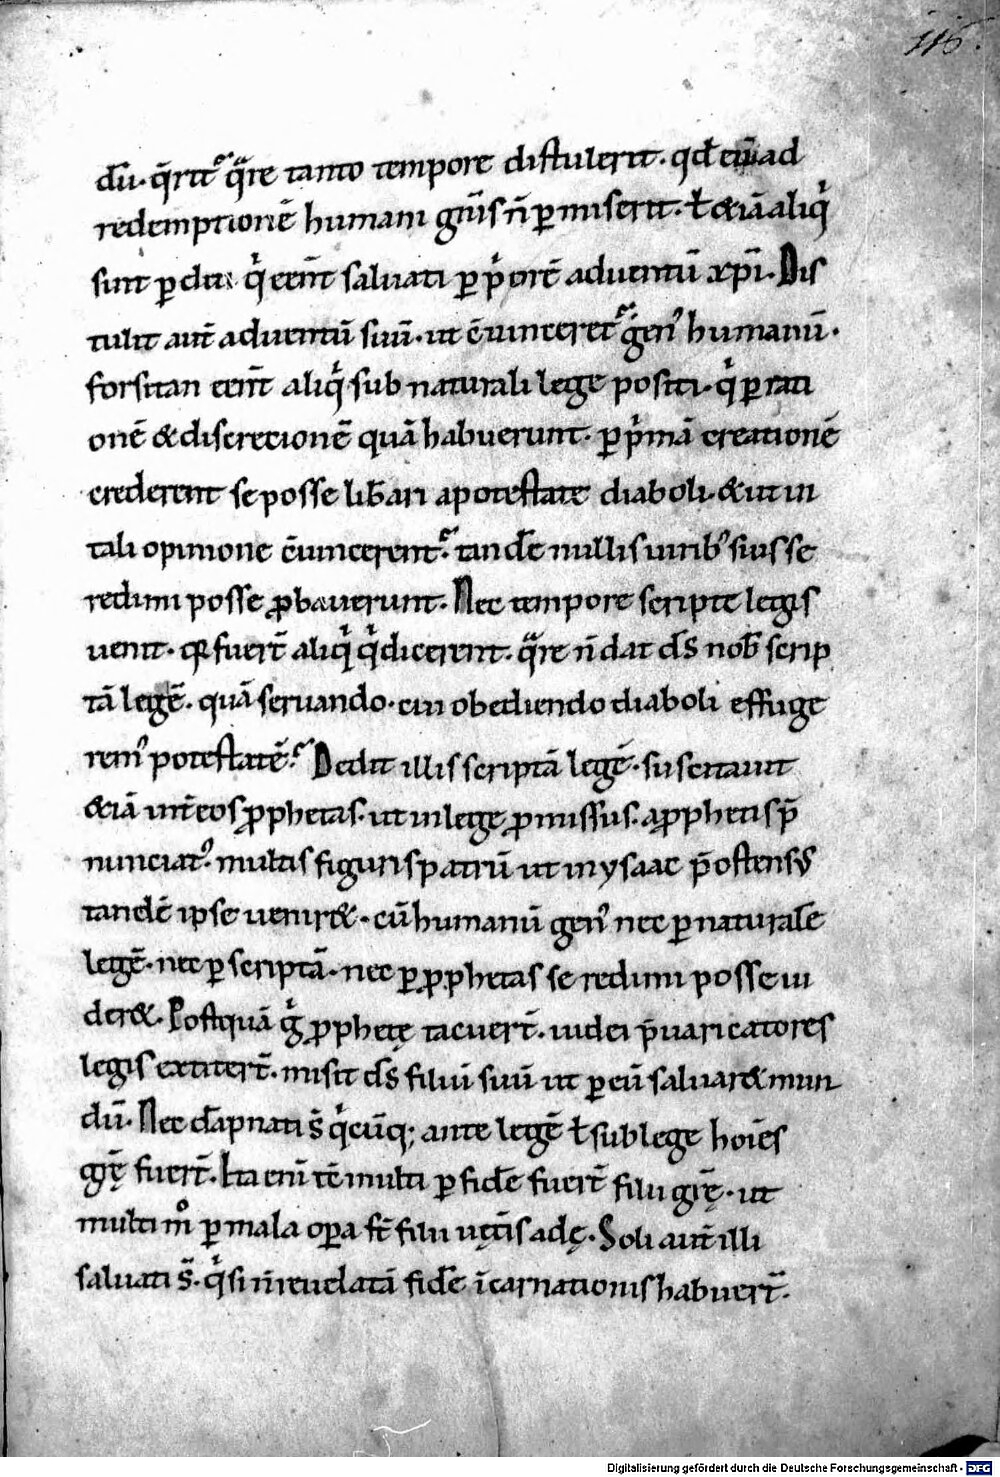 116.
dm̄. q̄rit᷑ q̄re tanto tempore distulerit. qd̄ eum ad
redemptionē humani gn̄is n̄ ꝑmiserit. ł &iā aliqͥ
sunt ꝑditi qͥ eēnt̄ saluati ꝑ pͥorē aduentū xp̄i. Dis
tulit aut̄ aduentū suū. ut ēuinceret᷑ genꝰ humanū.
forsitan eēnt̄ aliqͥ sub naturali lege positi. qͥ ꝑ rati
onē & discretionē quā habuerunt. ꝑ pͥmā creationē
crederent se posse lib̄ari a potestate diaboli. & ut in
tali opinione ēuincerent᷑. tandē nullis uiribꝰ suis se
redimi posse ꝓbauerunt. Nec tempore scripte legis
uenit. qꝛ fuer̄t aliqͥ qͥ dicerent. q̄re n̄ dat ds̄ nob̄ scrip
tā legē. quā seruando. cui obediendo diaboli effuge
remꝰ potestatē. Dedit illis scriptā legē. suscitauit
&iā int̄ eos ꝓphetas. ut in lege ꝓmissus. a ꝓphetis p̄
nunciatꝰ. multis figuris patrū ut in ysaac p̄ostensꝰ
tandē ipse uenir&. cū humanū genꝰ nec ꝑ naturalē
legē. nec ꝑ scriptā. nec ꝑ ꝓphetas se redimi posse ui
der&. Postquā gͥ ꝓphetę tacuer̄t. iudei p̄uaricatores
legis extiter̄t. misit ds̄ filiū suū ut ꝑ eū saluar& mun
dū. Nec dāpnati s̄ qͥcūq; ante legē ł sub lege hoīes
grę̄ fuer̄t. Ita enī tē multi ꝑ fidē fuer̄t filii grę̄. ut
multi mͦ ꝑ mala oꝑa st̄ filii uęt̄is adę. Soli aut̄ illi
saluati s̄. qͥ sī n̄ reuelatā fidē īcarnationis habuer̄t.
Digitalisierung gefördert durch die Deutsche Forschungsgemeinschaft - DFG